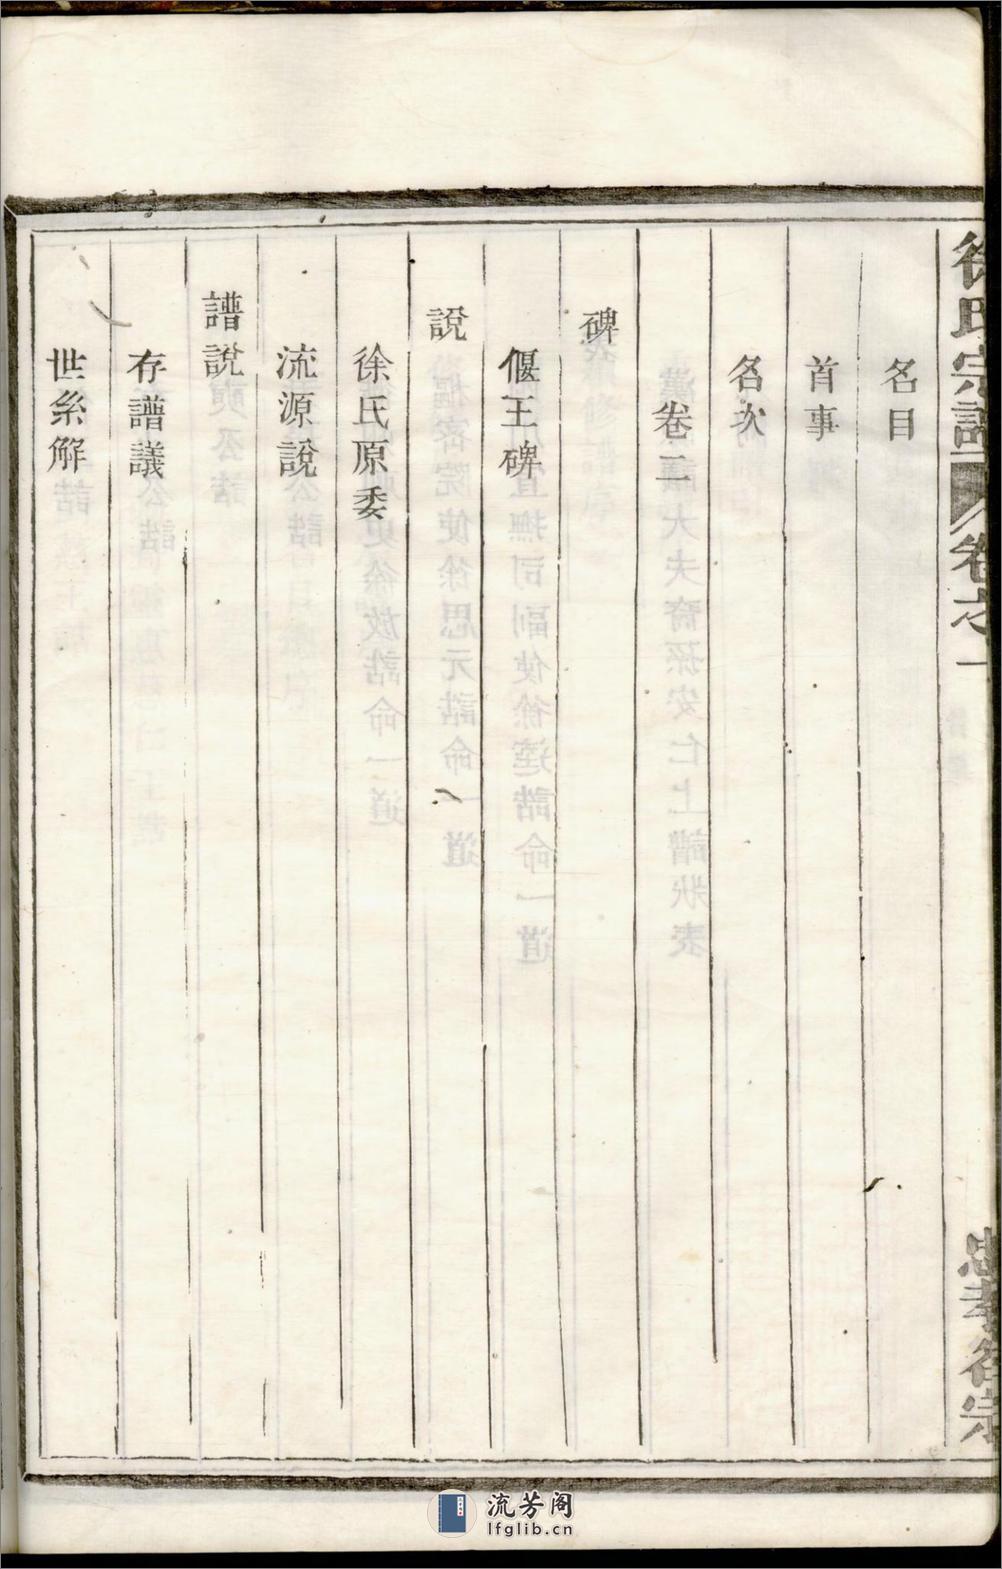 徐氏宗譜 卷之一
忠孝徐宗
名目
首事
名次
卷二
碑
偃王碑
說
徐氏原委
流源說
譜說
存譜議
世系解
流芳阁
lfglib.cn